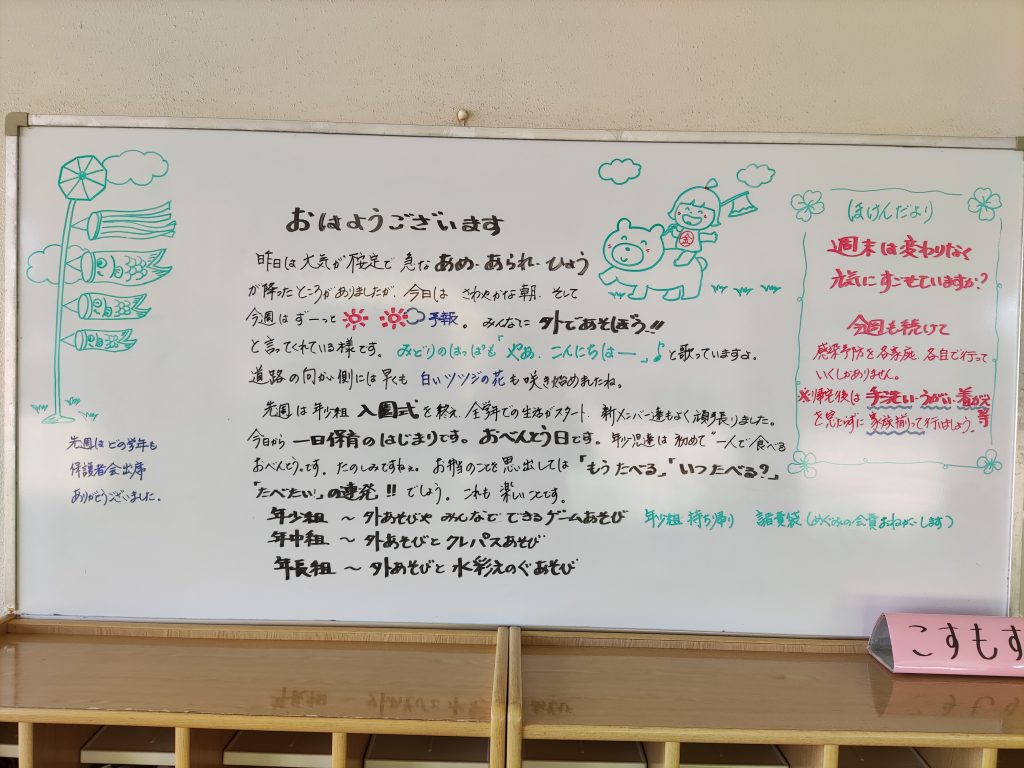 おはようございます
昨日は大気が不安定で 急な あめ・あられ・ひょう
が降ったところがありましたが、今日は さわやかな朝、そして
今週は ずーっと 予報。 みんなに 外であそぼう!!
と言ってくれている様です。 みどりのはっぱも「やあ、こんにちはー」♪ と歌っていますよ。
道路の向かい側には早くも 白いツツジの花も咲き始めましたね。
先週は年少組 入園式を終え、全学年での生活がスタート、新メンバー達もよく頑張りました。
今日から 一日保育のはじまりです。 おべんとう日です。 年少児達は初めて“一人で食べる
おべんとう。です。 たのしみですねぇ。 お弁当のことを思い出しては「もう たべる」「いつ たべる?」
「たべたい!」の連発!! でしょう。 これも 楽しいことです。
年少組 〜 外あそびや みんなで できる ゲームあそび 年少組 持ち帰り 諸費袋(めぐみの会費おねがいします)
年中組 〜 外あそびと クレパスあそび
年長組 〜 外あそびと 水彩えのぐあそび
先週は どの学年も
保護者会出席
ありがとうございました。
金
ほけんだより
週末は変わりなく
元気にすごせていますか?
今週も続けて
感染予防を各家庭、各自で行って
いくしかありません。
※帰宅後は 手洗い・うがい・着がえ等
を忘れずに 家族揃って行いましょう。
こすもす